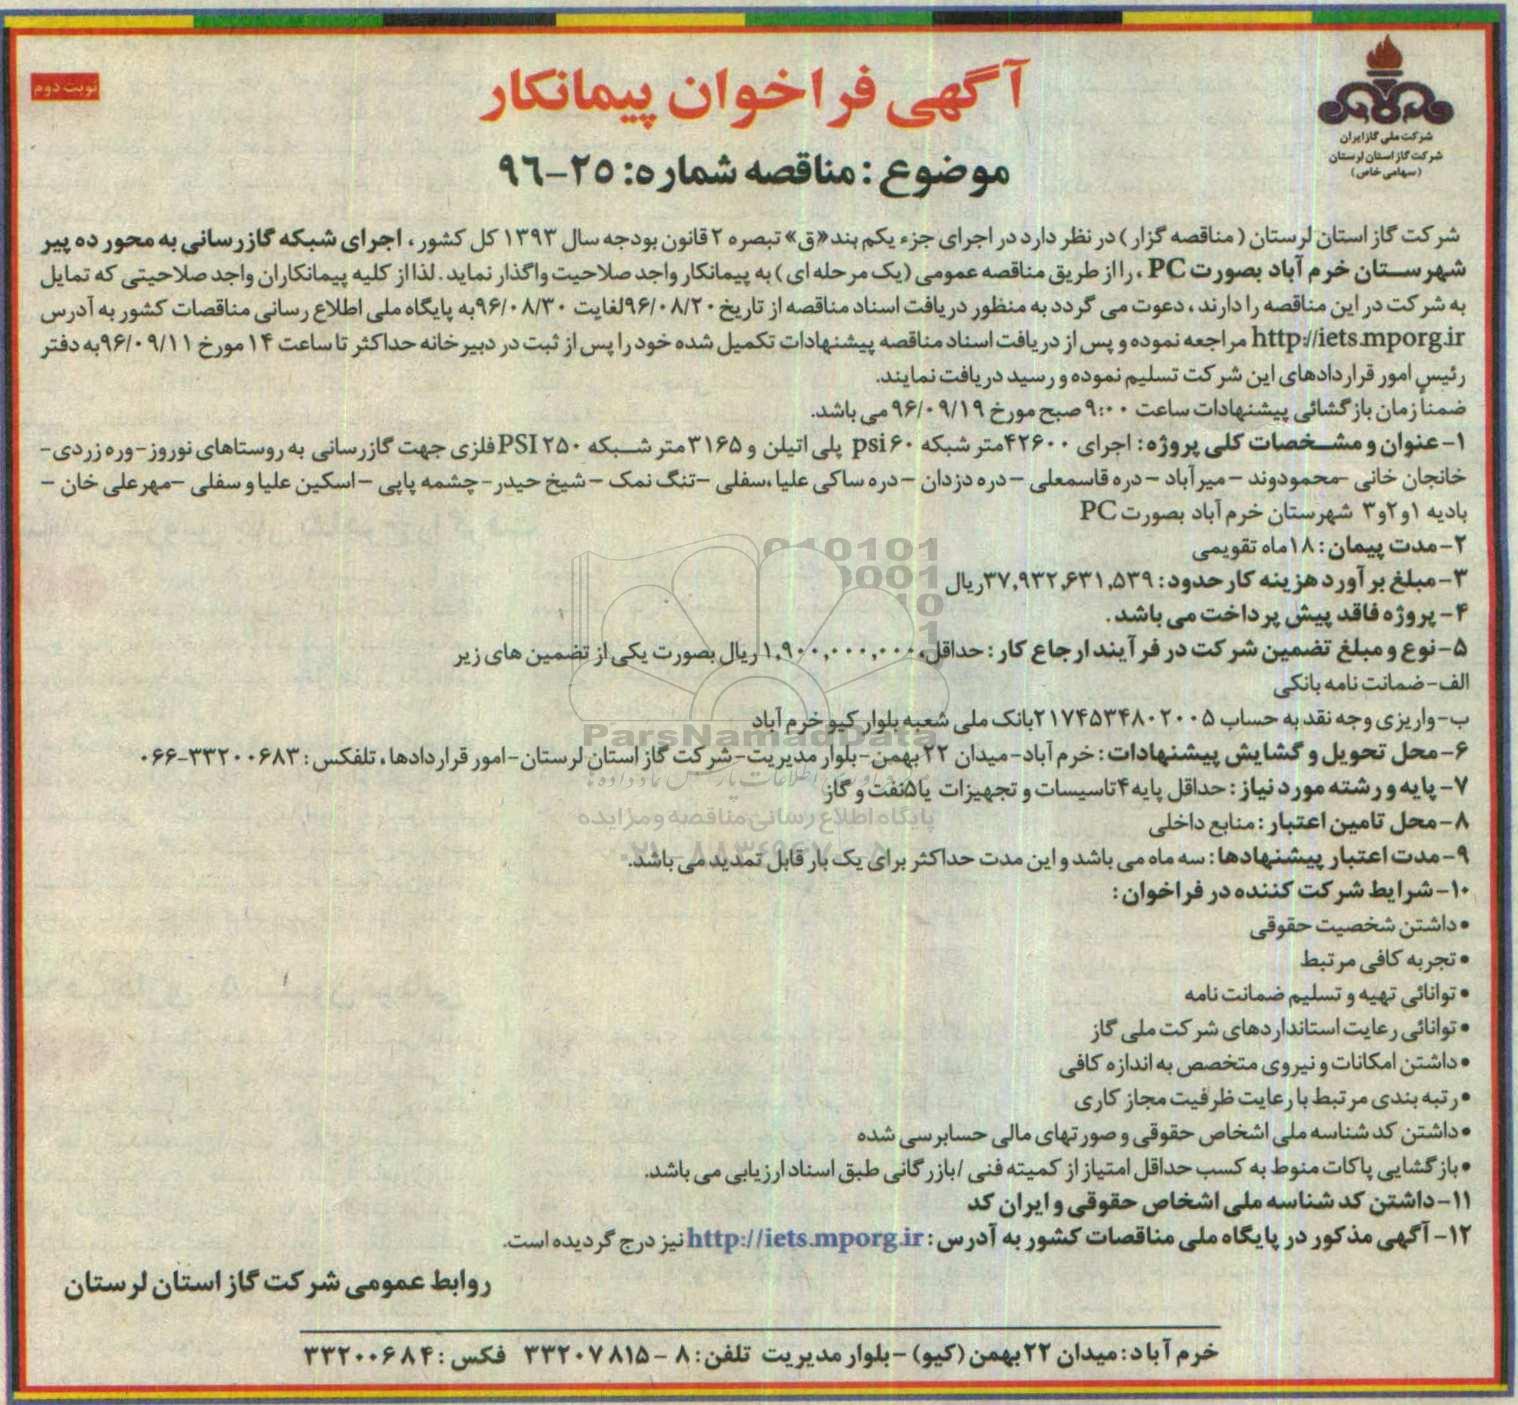 شرکت ملی گاز ایران
شرکت گاز استان لرستان
(سهامی خاص)
نوبت دوم
آگهی فراخوان پیمانکار
موضوع : مناقصه شماره: ۲۵-۹۶
شرکت گاز استان لرستان ( مناقصه گزار ) در نظر دارد در اجرای جزء یکم بند «ق» تبصره ۲ قانون بودجه سال ۱۳۹۳ کل کشور ، اجرای شبکه گازرسانی به محور ده پیر
شهرستان خرم آباد بصورت PC ، را از طریق مناقصه عمومی (یک مرحله ای ) به پیمانکار واجد صلاحیت واگذار نماید . لذا از کلیه پیمانکاران واجد صلاحیتی که تمایل
به شرکت در این مناقصه را دارند ، دعوت می گردد به منظور دریافت اسناد مناقصه از تاریخ ۹۶/۰۸/۲۰ لغایت ۹۶/۰۸/۳۰ به پایگاه ملی اطلاع رسانی مناقصات کشور به آدرس
http://iets.mporg.ir مراجعه نموده و پس از دریافت اسناد مناقصه پیشنهادات تکمیل شده خود را پس از ثبت در دبیرخانه حداکثر تا ساعت ۱۴ مورخ ۹۶/۰۹/۱۱ به دفتر
رئیس امور قراردادهای این شرکت تسلیم نموده و رسید دریافت نمایند.
ضمناً زمان بازگشائی پیشنهادات ساعت ۹:۰۰ صبح مورخ ۹۶/۰۹/۱۹ می باشد.
۱- عنوان و مشخصات کلی پروژه : اجرای ۴۲۶۰۰ متر شبکه psi ۶۰ پلی اتیلن و ۳۱۶۵ متر شبکه PSI ۲۵۰ فلزی جهت گازرسانی به روستاهای نوروز- وره زردی-
خانجان خانی -محمودوند - میرآباد - دره قاسمعلی - دره دزدان - دره ساکی علیا ،سفلی - تنگ نمک - شیخ حیدر- چشمه پاپی - اسکین علیا و سفلی - مهرعلی خان -
بادیه ۱و۲و۳ شهرستان خرم آباد بصورت PC
۲- مدت پیمان : ۱۸ ماه تقویمی
۳- مبلغ برآورد هزینه کار حدود : ۳۷,۹۳۲,۶۳۱,۵۳۹ ریال
۴- پروژه فاقد پیش پرداخت می باشد .
۵- نوع و مبلغ تضمین شرکت در فرآیند ارجاع کار : حداقل ۱,۹۰۰,۰۰۰,۰۰۰ ریال بصورت یکی از تضمین های زیر
الف- ضمانت نامه بانکی
ب- واریزی وجه نقد به حساب ۲۱۷۴۵۳۴۸۰۲۰۰۵ بانک ملی شعبه بلوار کیو خرم آباد
۶- محل تحویل و گشایش پیشنهادات : خرم آباد- میدان ۲۲ بهمن- بلوار مدیریت- شرکت گاز استان لرستان- امور قراردادها ، تلفکس : ۳۳۲۰۰۶۸۳-۰۶۶
۷- پایه و رشته مورد نیاز : حداقل پایه ۴ تاسیسات و تجهیزات یا ۵ نفت و گاز
۸- محل تامین اعتبار : منابع داخلی
۹- مدت اعتبار پیشنهادها : سه ماه می باشد و این مدت حداکثر برای یک بار قابل تمدید می باشد.
۱۰- شرایط شرکت کننده در فراخوان :
• داشتن شخصیت حقوقی
• تجربه کافی مرتبط
• توانائی تهیه و تسلیم ضمانت نامه
• توانائی رعایت استانداردهای شرکت ملی گاز
• داشتن امکانات و نیروی متخصص به اندازه کافی
• رتبه بندی مرتبط با رعایت ظرفیت مجاز کاری
• داشتن کد شناسه ملی اشخاص حقوقی و صورتهای مالی حسابرسی شده
• بازگشایی پاکات منوط به کسب حداقل امتیاز از کمیته فنی /بازرگانی طبق اسناد ارزیابی می باشد.
۱۱- داشتن کد شناسه ملی اشخاص حقوقی و ایران کد
۱۲- آگهی مذکور در پایگاه ملی مناقصات کشور به آدرس : http://iets.mporg.ir نیز درج گردیده است.
روابط عمومی شرکت گاز استان لرستان
خرم آباد : میدان ۲۲ بهمن (کیو) - بلوار مدیریت تلفن : ۸ - ۳۳۲۰۷۸۱۵ فکس : ۳۳۲۰۰۶۸۴
ParsNamadData
پایگاه اطلاع رسانی مناقصه و مزایده